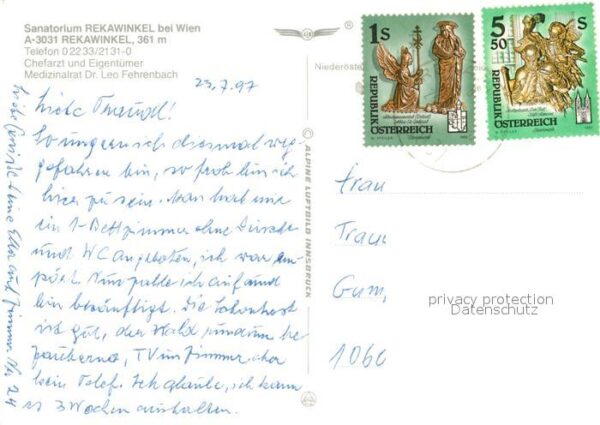 Sanatorium REKAWINKEL bei Wien
A-3031 REKAWINKEL, 361 m
Telefon 0 22 33/2131-0
Chefarzt und Eigentümer
Medizinalrat Dr. Leo Fehrenbach
23.7.97
Liebe Traudl!
So ungern ich diesmal weg
gefahren bin, so froh bin ich
hier zu sein. Man hat mir
ein 1-Bettzimmer ohne Dusche
und WC angeboten, ich war em-
pört. Nun zahle ich auf und
bin besänftigt. Die
ist gut, der Wald rundum be
zaubernd, TV im Zimmer aber
kein Telef. Ich glaube, ich kann
es 3 Wochen aushalten.
Liebe Grüße Deine Ella auf Zimmer No 24
© ALPINE LUFTBILD INNSBRUCK
Niederöste
1S
REPUBLIK
ÖSTERREICH
5 50 S
REPUBLIK
ÖSTERREICH
Frau
Trau
Gum
1060
privacy protection
Datenschutz